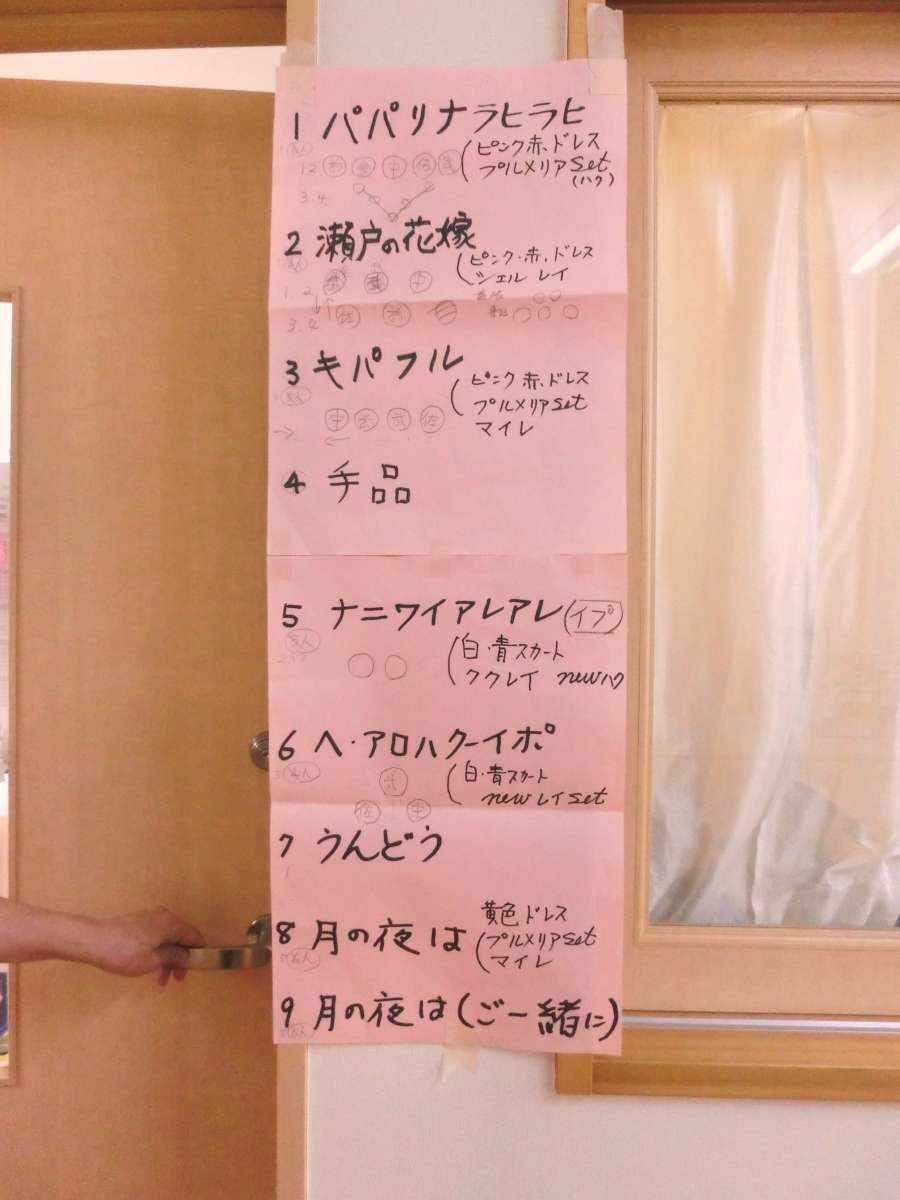 1 パパリナラヒラヒ
ピンク赤、ドレス
プルメリアset
(ハク)
1 2
3.4
2 瀬戸の花嫁
ピンク・赤、ドレス
シェル レイ
1. 2
中
3.4
佐
3 キパフル
ピンク 赤、ドレス
プルメリアset
マイレ
中 武 佐
4 手品
5 ナニワイアレアレ(イプ)
白・青スカート
ククレイ newハク
6 ヘ・アロハクーイポ
白・青スカート
newレイset
武
佐 中
7 うんどう
8 月の夜は
黄色ドレス
プルメリアset
マイレ
9 月の夜は(ご一緒に)